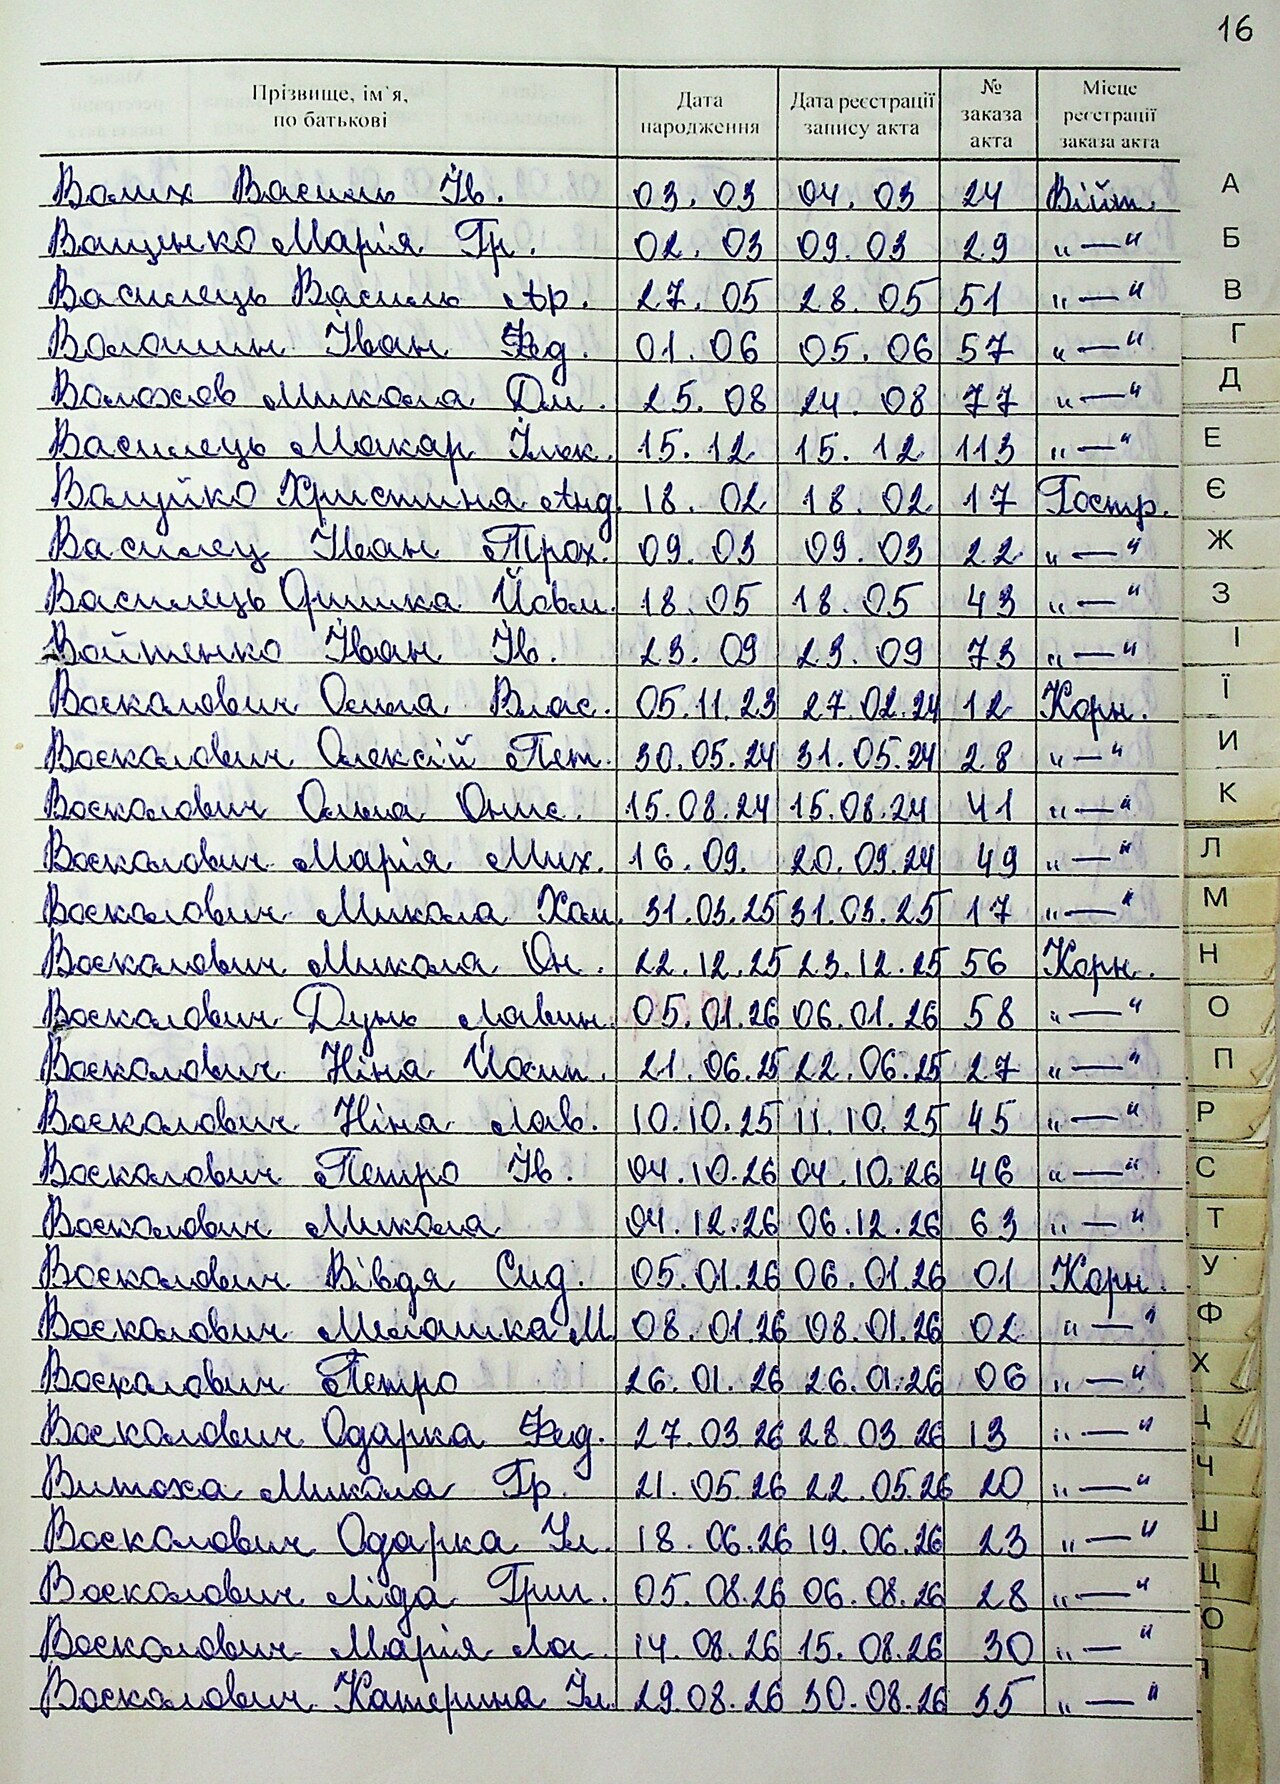 16
Прізвище, ім'я, по батькові Дата народження Дата реєстрації запису акта № заказа акта Місце реєстрації заказа акта
Василь Ів. 03.03 04.03 24 Війт. А
Ващенко Марія Гр. 02.03 09.03 29 „—“ Б
Василець Василь Ар. 27.05 28.05 51 „—“ В
Волошин Іван Фед. 01.06 05.06 57 „—“ Г
Волохов Микола Дм. 25.08 24.08 77 „—“ Д
Василець Макар Ільк. 15.12 15.12 113 „—“ Е
Валуйко Христина Анд. 18.02 18.02 17 Гостр. Є
Василец Іван Троx. 09.03 09.03 22 „—“ Ж
Василець Оришка Йовм. 18.05 18.05 43 „—“ З
Войтенко Іван Ів. 23.09 23.09 73 „—“ І
Воскалович Ольга Влас. 05.11.23 27.02.24 12 Корн. Ї
Воскалович Олексій Пет. 30.05.24 31.05.24 28 „—“ И
Воскалович Ольга Онис. 15.08.24 15.08.24 41 „—“ К
Воскалович Марія Мих. 16.09. 20.09.24 49 „—“ Л
Воскалович Микола Хом. 31.03.25 31.03.25 17 „—“ М
Воскалович Микола Он. 22.12.25 23.12.25 56 Корн. Н
Воскалович Дунь Лавин. 05.01.26 06.01.26 58 „—“ О
Воскалович Ніна Йосип. 21.06.25 22.06.25 27 „—“ П
Воскалович Ніна Лав. 10.10.25 11.10.25 45 „—“ Р
Воскалович Петро Ів. 04.10.26 04.10.26 46 „—“ С
Воскалович Микола 04.12.26 06.12.26 63 „—“ Т
Воскалович Вівдя Сид. 05.01.26 06.01.26 01 Корн. У
Воскалович Мелашка М. 08.01.26 08.01.26 02 „—“ Ф
Воскалович Петро 26.01.26 26.01.26 06 „—“ Х
Воскалович Одарка Фед. 27.03.26 28.03.26 13 „—“ Ц
Витоха Микола Гр. 21.05.26 22.05.26 20 „—“ Ч
Воскалович Одарка Ул. 18.06.26 19.06.26 23 „—“ Ш
Воскалович Ліда Григ. 05.08.26 06.08.26 28 „—“ Щ
Воскалович Марія Ла 14.08.26 15.08.26 30 „—“
Воскалович Катерина Ул. 29.08.26 30.08.26 35 „—“